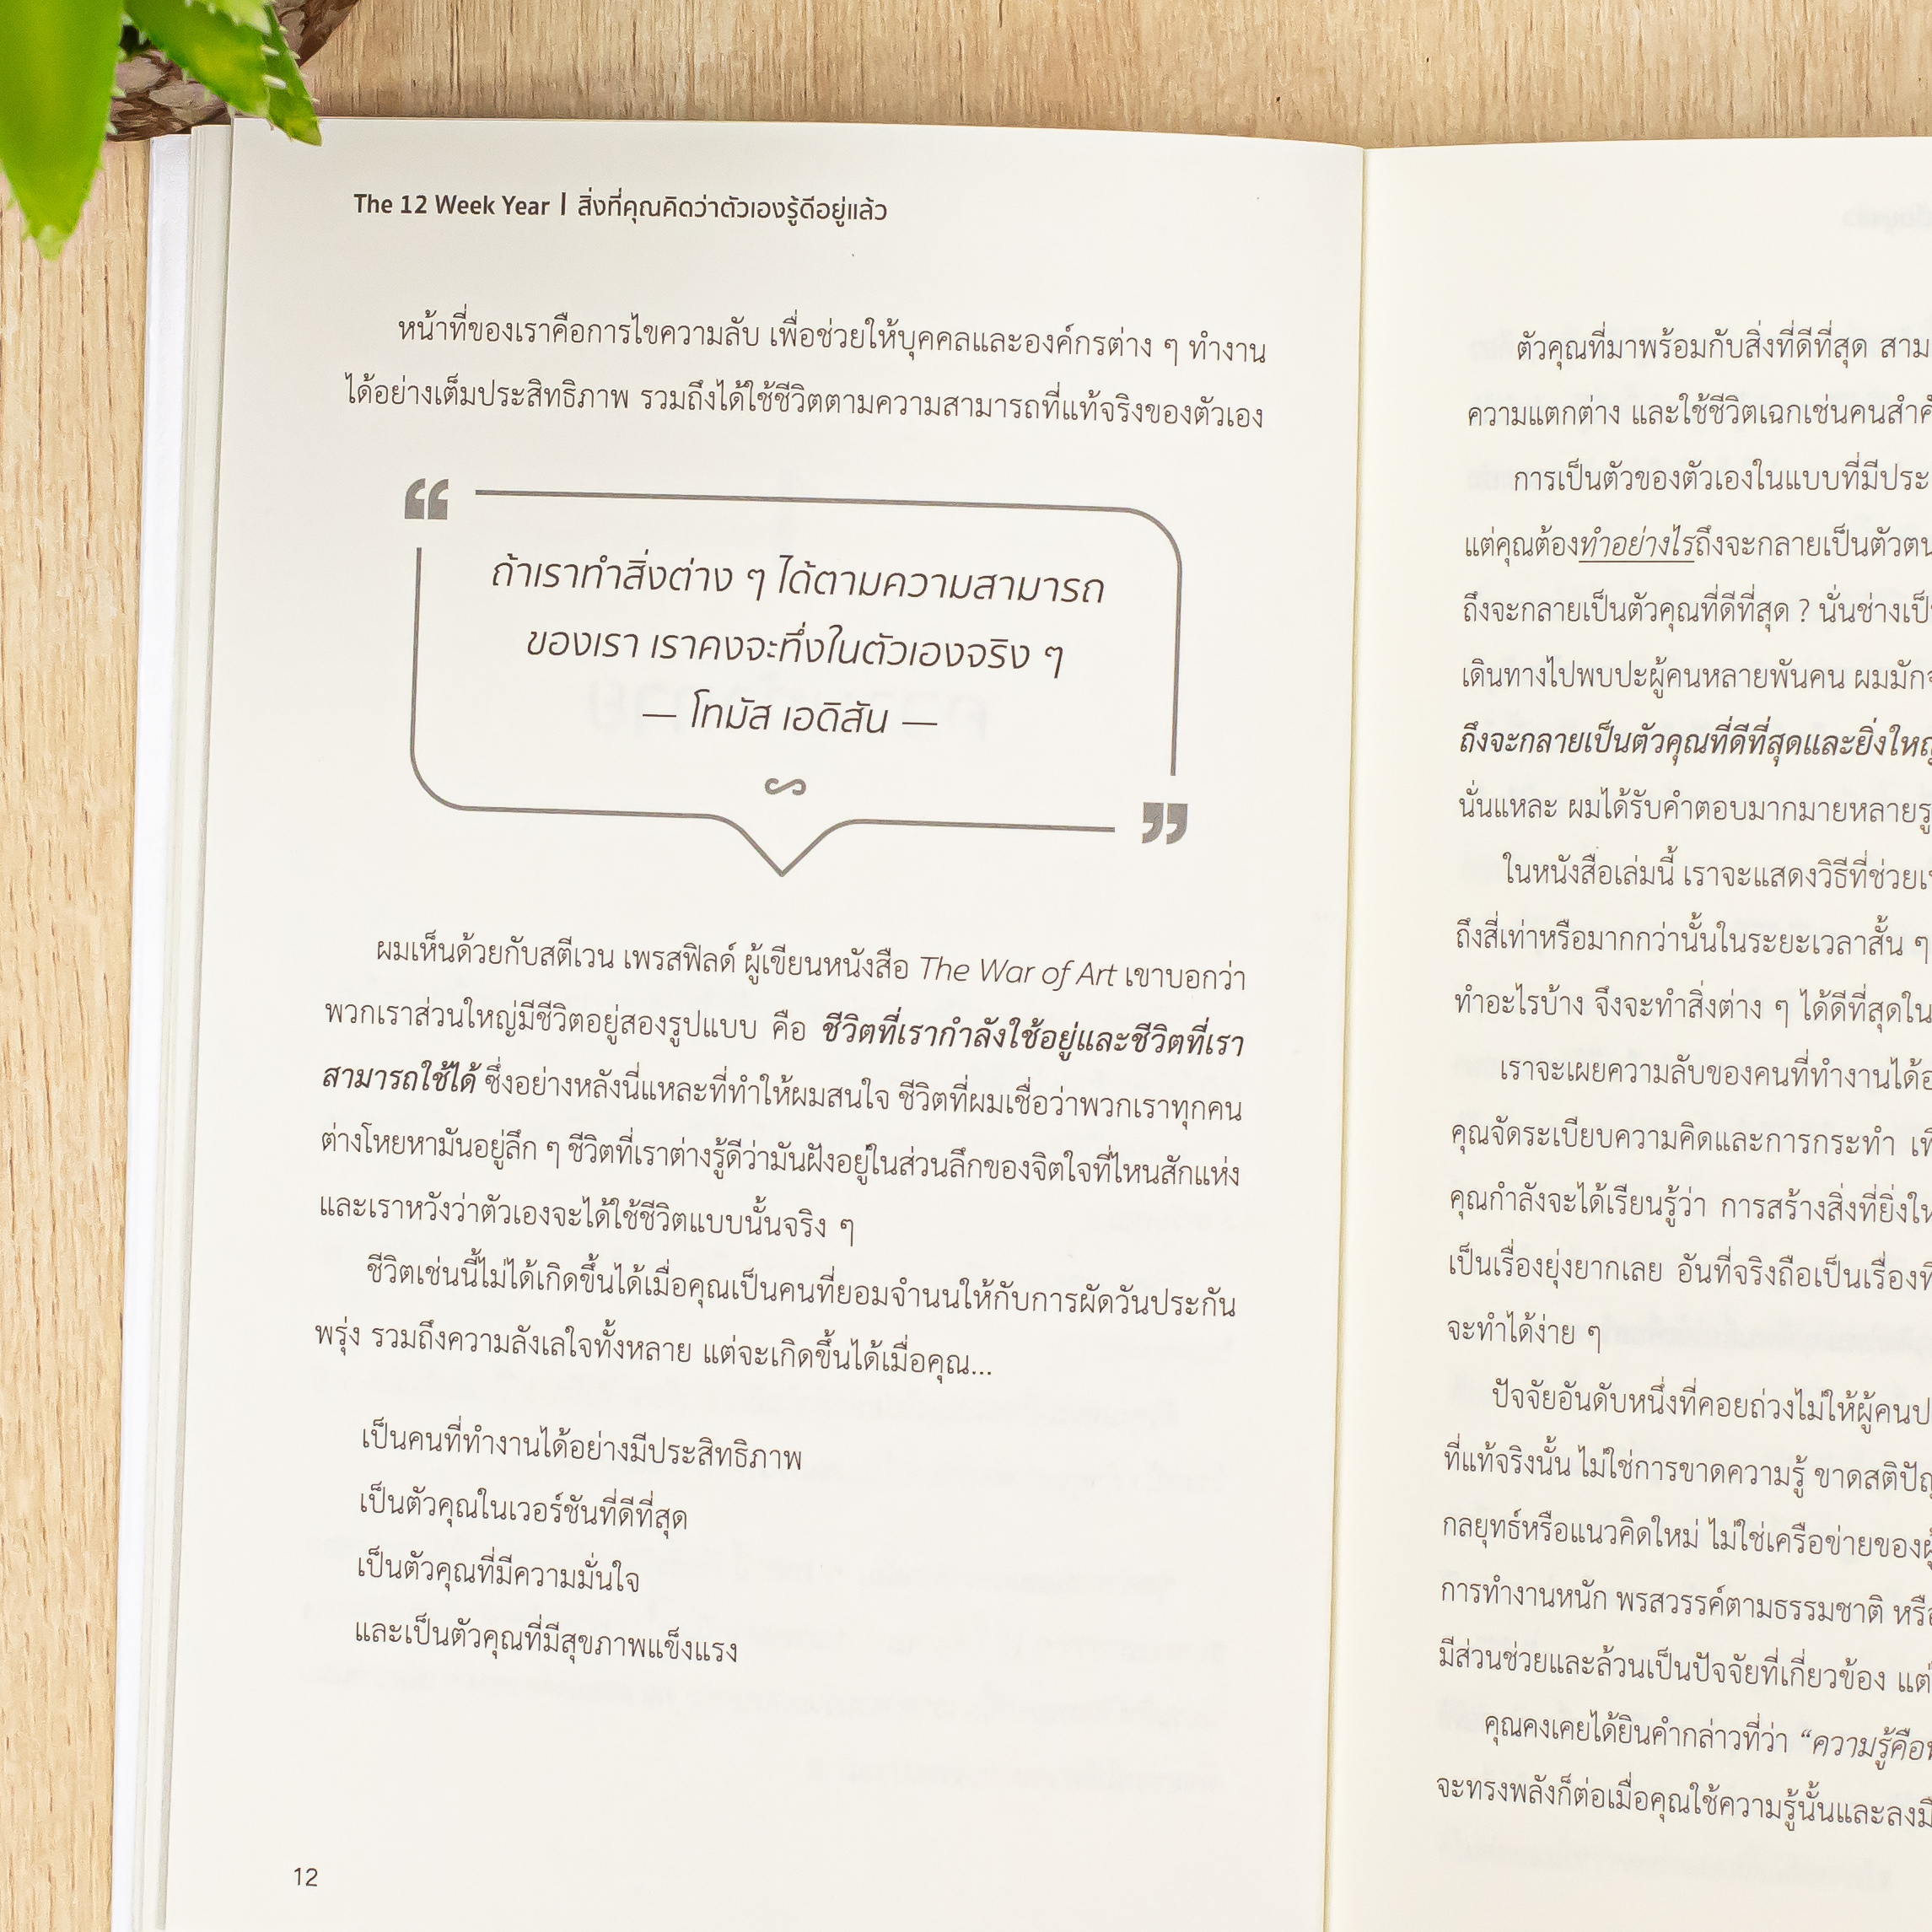 The 12 Week Year | สิ่งที่คุณคิดว่าตัวเองรู้ดีอยู่แล้ว
หน้าที่ของเราคือการไขความลับ เพื่อช่วยให้บุคคลและองค์กรต่าง ๆ ทำงาน
ได้อย่างเต็มประสิทธิภาพ รวมถึงได้ใช้ชีวิตตามความสามารถที่แท้จริงของตัวเอง
“
ถ้าเราทำสิ่งต่าง ๆ ได้ตามความสามารถ
ของเรา เราคงจะทึ่งในตัวเองจริง ๆ
— โทมัส เอดิสัน —
”
ผมเห็นด้วยกับสตีเวน เพรสฟิลด์ ผู้เขียนหนังสือ The War of Art เขาบอกว่า
พวกเราส่วนใหญ่มีชีวิตอยู่สองรูปแบบ คือ ชีวิตที่เรากำลังใช้อยู่และชีวิตที่เรา
สามารถใช้ได้ ซึ่งอย่างหลังนี่แหละที่ทำให้ผมสนใจ ชีวิตที่ผมเชื่อว่าพวกเราทุกคน
ต่างโหยหามันอยู่ลึก ๆ ชีวิตที่เราต่างรู้ดีว่ามันฝังอยู่ในส่วนลึกของจิตใจที่ไหนสักแห่ง
และเราหวังว่าตัวเองจะได้ใช้ชีวิตแบบนั้นจริง ๆ
ชีวิตเช่นนี้ไม่ได้เกิดขึ้นได้เมื่อคุณเป็นคนที่ยอมจำนนให้กับการผัดวันประกัน
พรุ่ง รวมถึงความลังเลใจทั้งหลาย แต่จะเกิดขึ้นได้เมื่อคุณ...
เป็นคนที่ทำงานได้อย่างมีประสิทธิภาพ
เป็นตัวคุณในเวอร์ชันที่ดีที่สุด
เป็นตัวคุณที่มีความมั่นใจ
และเป็นตัวคุณที่มีสุขภาพแข็งแรง
12
ตัวคุณที่มาพร้อมกับสิ่งที่ดีที่สุด สาม
ความแตกต่าง และใช้ชีวิตเฉกเช่นคนสำคั
การเป็นตัวของตัวเองในแบบที่มีประ
แต่คุณต้องทำอย่างไรถึงจะกลายเป็นตัวตน
ถึงจะกลายเป็นตัวคุณที่ดีที่สุด ? นั่นช่างเป็
เดินทางไปพบปะผู้คนหลายพันคน ผมมัก
ถึงจะกลายเป็นตัวคุณที่ดีที่สุดและยิ่งใหญ่
นั่นแหละ ผมได้รับคำตอบมากมายหลายรู
ในหนังสือเล่มนี้ เราจะแสดงวิธีที่ช่วย
ถึงสี่เท่าหรือมากกว่านั้นในระยะเวลาสั้น ๆ
ทำอะไรบ้าง จึงจะทำสิ่งต่าง ๆ ได้ดีที่สุดใน
เราจะเผยความลับของคนที่ทำงานได้
คุณจัดระเบียบความคิดและการกระทำ
คุณกำลังจะได้เรียนรู้ว่า การสร้างสิ่งที่ยิ่งให
เป็นเรื่องยุ่งยากเลย อันที่จริงถือเป็นเรื่องที่
จะทำได้ง่าย ๆ
ปัจจัยอันดับหนึ่งที่คอยถ่วงไม่ให้ผู้คนป
ที่แท้จริงนั้น ไม่ใช่การขาดความรู้ ขาดสติปัญ
กลยุทธ์หรือแนวคิดใหม่ ไม่ใช่เครือข่ายของผู้
การทำงานหนัก พรสวรรค์ตามธรรมชาติ หรือ
มีส่วนช่วยและล้วนเป็นปัจจัยที่เกี่ยวข้อง แต่
คุณคงเคยได้ยินคำกล่าวที่ว่า “ความรู้คือ
จะทรงพลังก็ต่อเมื่อคุณใช้ความรู้นั้นและลงมื